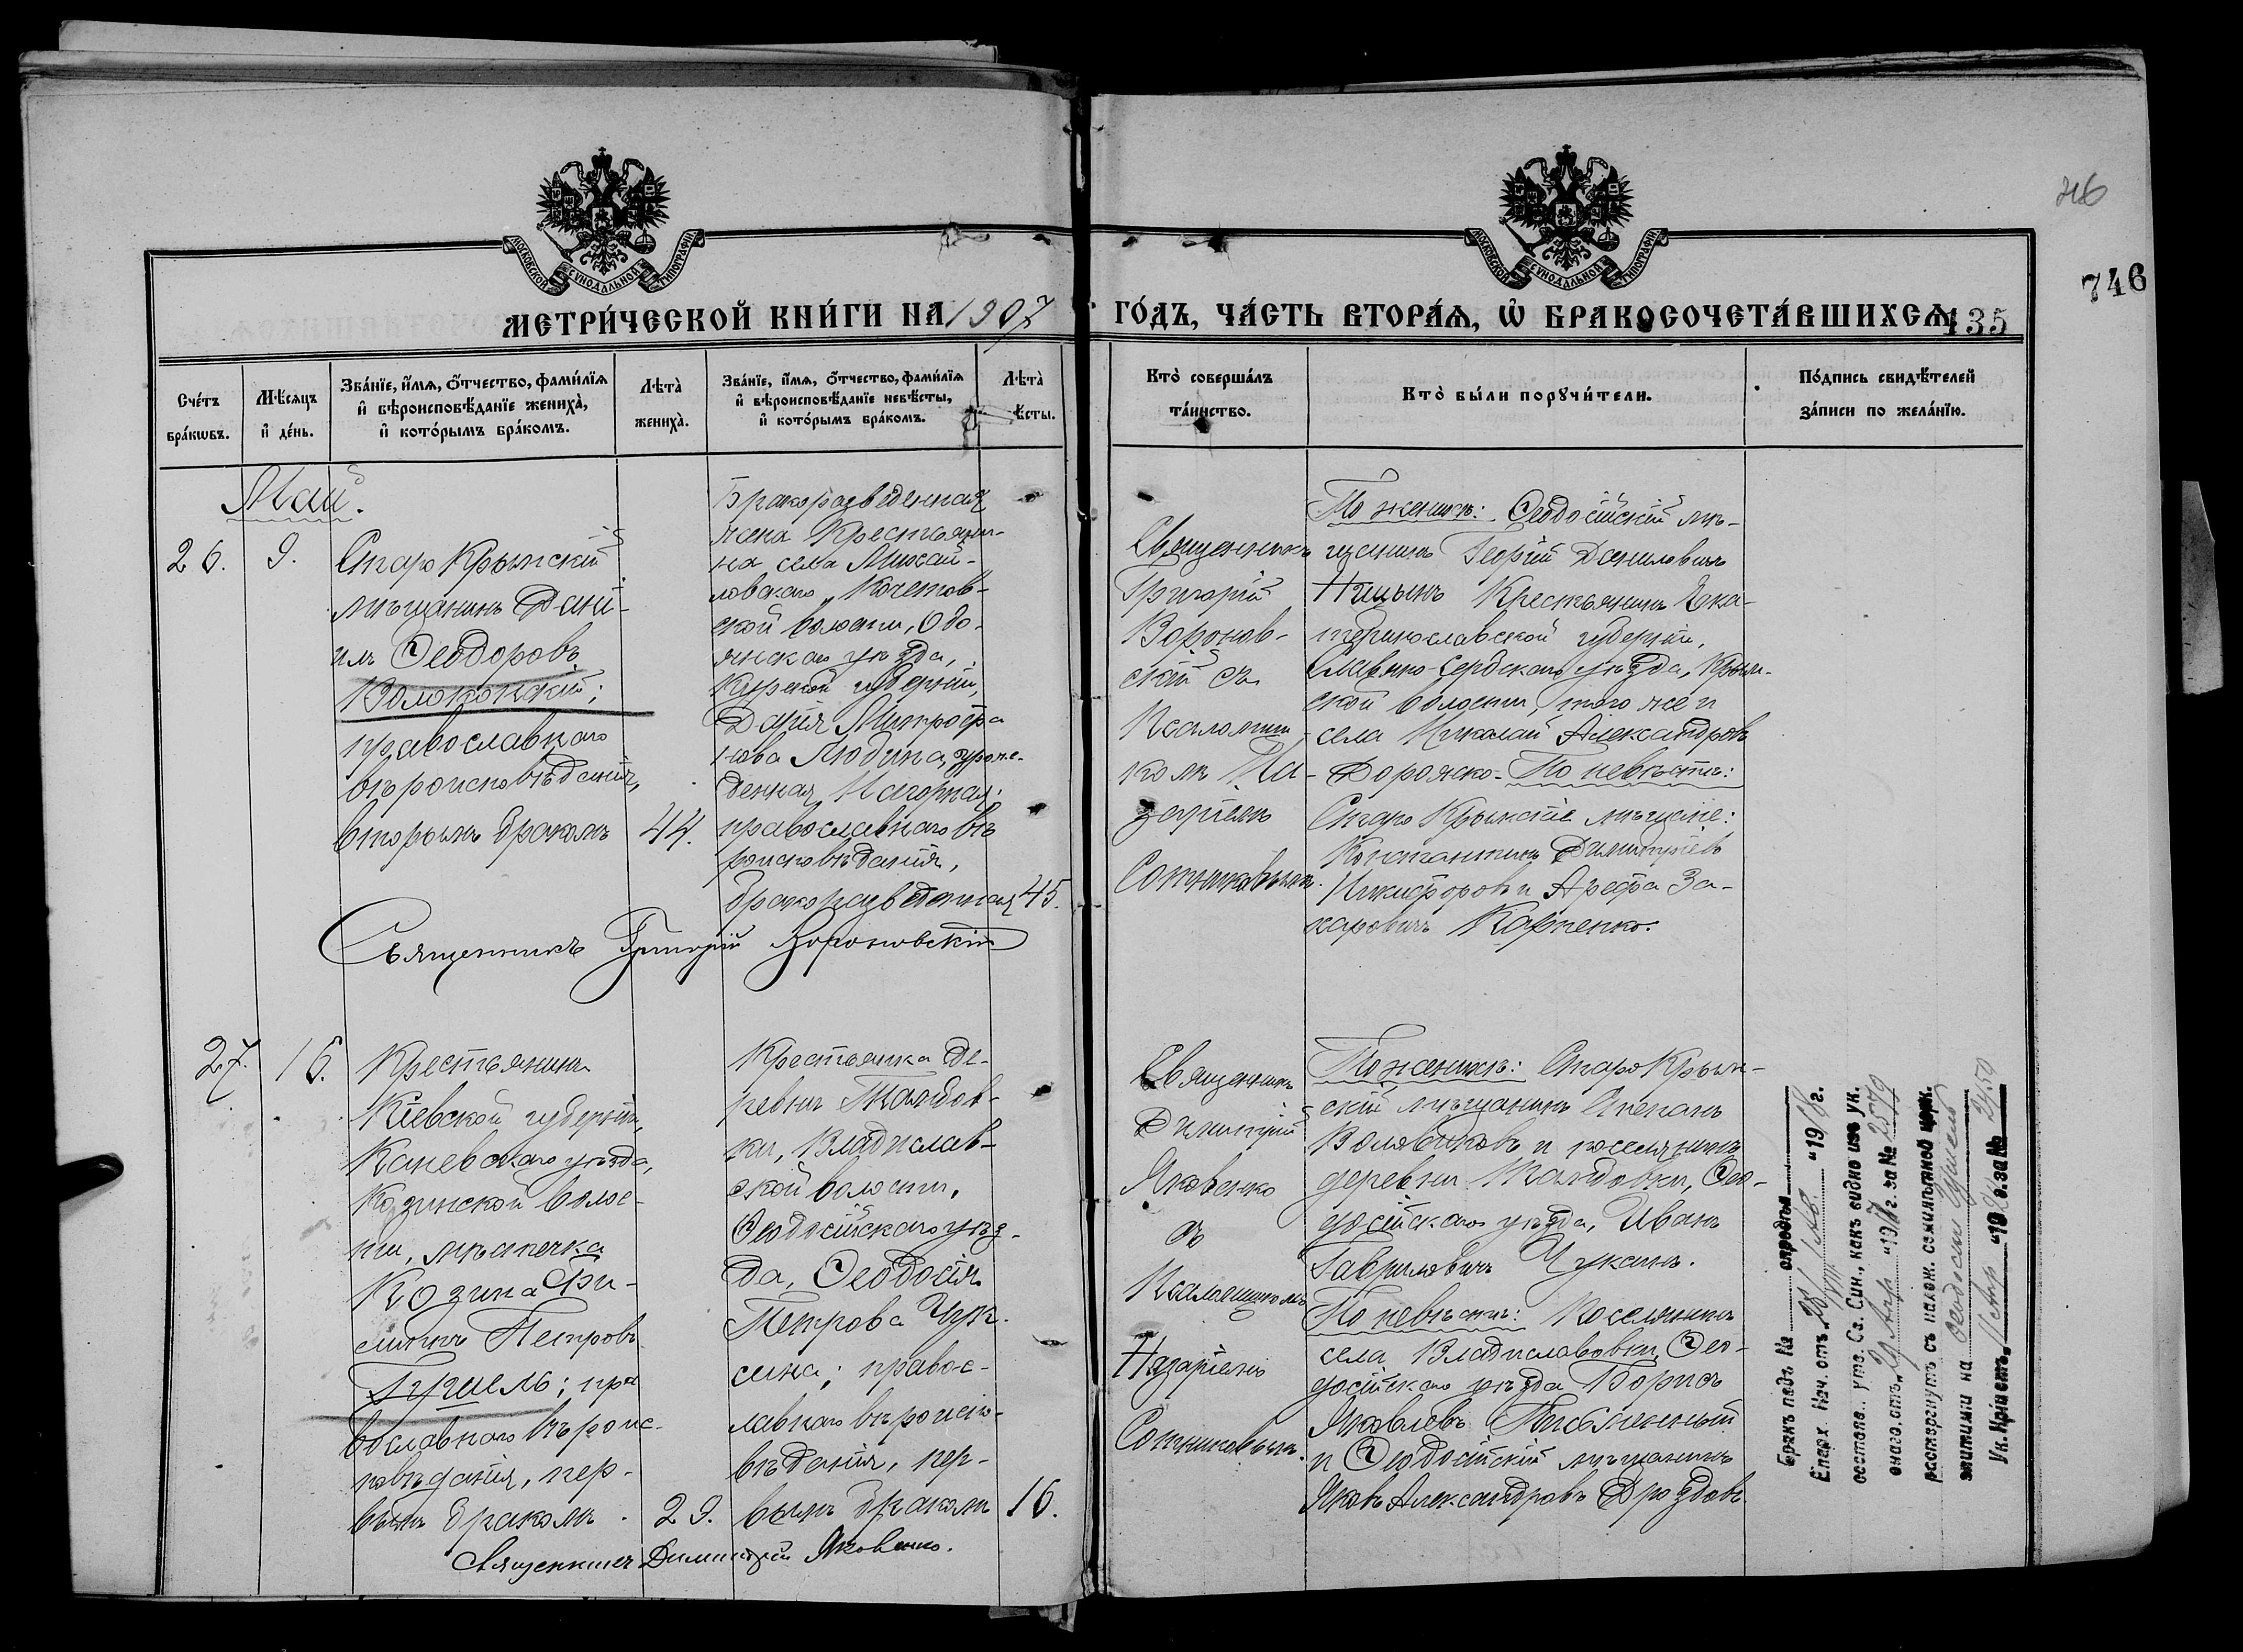 46
746
МОСКОВСКОЙ СѴНОДАЛЬНОЙ ТИПОГРАФІИ
МОСКОВСКОЙ СѴНОДАЛЬНОЙ ТИПОГРАФІИ
МЕТРИ́ЧЕСКОЙ КНИ́ГИ НА 1907
ГО́ДЪ, ЧА́СТЬ ВТОРА́Я, Ѡ҆ БРАКОСОЧЕТА́ВШИХСѦ
135
Сче́тъ бра́кѡвъ.
Мѣ́сяцъ и҆ де́нь.
Зва́нїе, и҆́мя, ѻ҆́тчество, фамѝлїя
и҆ вѣроисповѣ́данїе жениха̀,
и҆ кото́рымъ бра́комъ.
Лѣта̀ жениха̀.
Зва́нїе, и҆́мя, ѻ҆́тчество, фамѝлїя
и҆ вѣроисповѣ́данїе невѣ́сты,
и҆ кото́рымъ бра́комъ.
Лѣта̀
ѣ́сты.
Кто̀ соверша́лъ
та́инство.
Кто̀ бы́ли порꙋчи́тели.
По́дпись свидѣ́телей
за́писи по жела́нїю.
Май.
26.
9.
Старо Крымскій
мѣщанинъ Дані-
илъ Ѳеодоровъ
Волоконскій;
православнаго
вѣроисповѣданія,
вторымъ бракомъ
44.
Бракоразведенная
жена Крестьяни-
на села Михай-
ловскаго, Кочетов-
ской волости, Обо-
янскаго уѣзда,
Курской губерніи,
Дарія Митрофа
нова Людина, урож-
денная Нагорная;
православнаго вѣ
роисповѣданія,
бракоразведенная
45.
Священникъ Григорій Вороновскій
Священникъ
Григорій
Воронов-
скій съ
Псаломщи-
комъ На-
заріемъ
Сотниковымъ.
По женихѣ: Ѳеодосійскій мѣ-
щанинъ Георгій Даниловичъ
Ницынъ Крестьянинъ Ека-
теринославской губерніи,
Славяно-Сербскаго уѣзда, Крым-
ской волости, того же и
села Николай Александровъ
Дорожко. По невѣстѣ:
Старо Крымскіе мѣщане:
Константинъ Димитріевъ
Никифоровъ и Арефа За-
харовичъ Карпенко.
27.
16.
Крестьянинъ
Кіевской губерніи,
Каневскаго уѣзда,
Козинской волос-
ти, мѣстечка
Козина Фи-
Петровъ
Гушель; пра
вославнаго вѣроис-
повѣданія, пер-
вымъ бракомъ.
29.
Крестьянка де-
ревни
ки, Владислав-
ской волости,
Ѳеодосійскаго уѣз-
да, Ѳеодосія
Петрова Чук-
сина; правос-
лавнаго вѣроиспо-
вѣданія, пер-
вымъ бракомъ
16.
Священникъ Димитрій Яковенко.
Священникъ
Димитрій
Яковенко
съ
Псаломщикомъ
Назаріемъ
Сотниковымъ.
По женихѣ: Старо Крым-
скій мѣщанинъ Степанъ
и поселянинъ
деревни Ѳео-
досійскаго уѣзда, Иванъ
Гавриловичъ Чуксинъ.
По невѣстѣ: Поселянинъ
села Владиславовки, Ѳео-
досійскаго уѣзда Борисъ
Яковлевъ
и Ѳеодосійскій мѣщанинъ
Яковъ Александровъ Дроздовъ
Бракъ подъ № опредѣл.
Епарх. Нач. отъ "19 г.
состояв. утв. Св. Син., какъ видно изъ ук.
онаго отъ Апр "19 г. за № 2579
расторгнутъ съ налож. семилѣтной церк.
эпитиміи на
Ук. Крiиствъ "19 г. за №